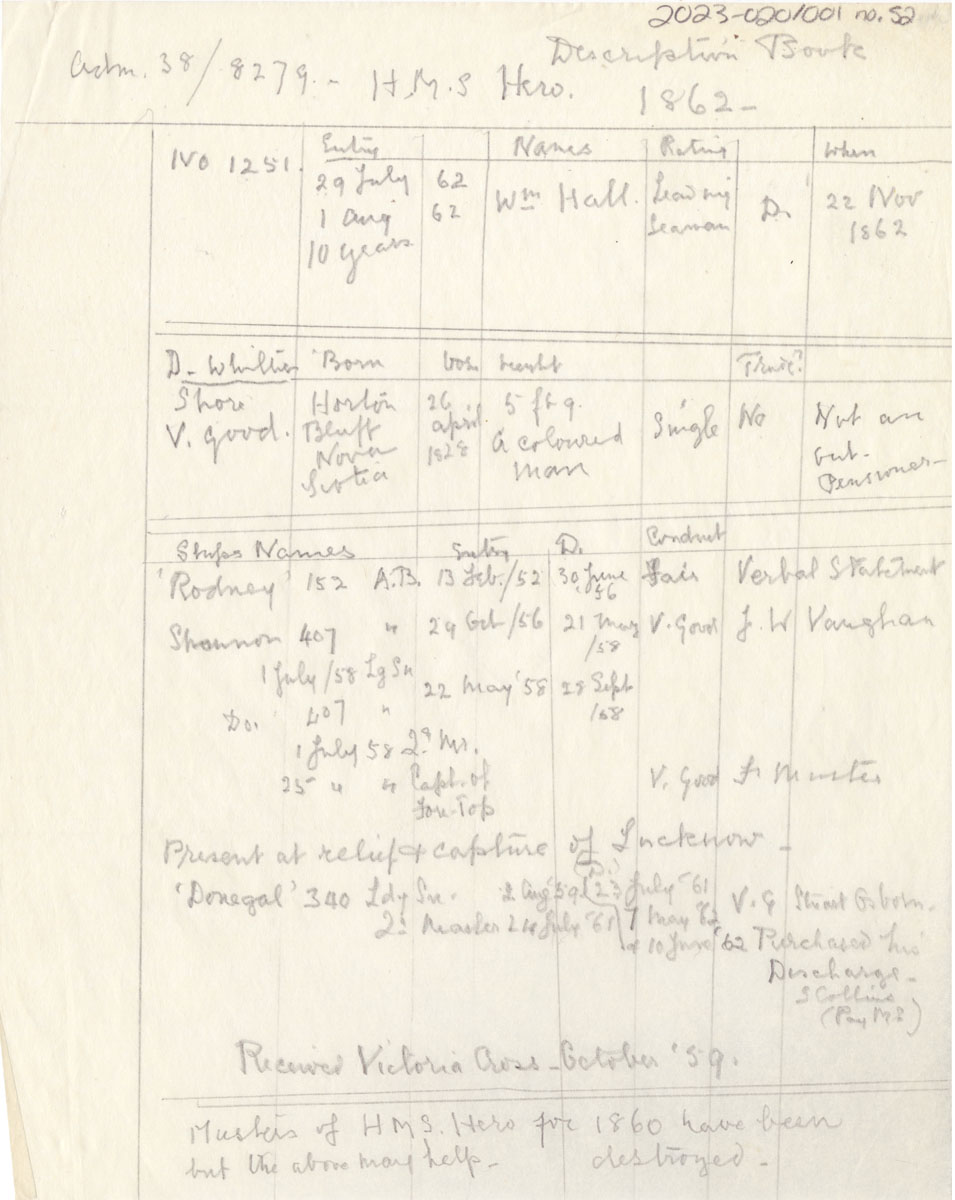 2023-020/001 no. 52
Adm. 38/8279.- H.M.S Hero. Description Book
1862-
Entry Names Rating When
No 1251. 29 July 62 Wm Hall. Leading Seaman D. 22 Nov 1862
1 Aug 62
10 years
D- Whither Born Height Trade?
Shore Horton 26 5 ft 9. Single No Not an
V. good. Bluff april. A coloured out-
Nova 1828 man Pensioner-
Scotia
Ships Names Entry D. Conduct
'Rodney' 152 A.B. 13 Feb./52 30 June 56 Fair Verbal Statement
Shannon 407 " 29 Oct/56 21 May /58 V. Good J. W Vaughan
1 July/58 Lg Sn
Do. 407 " 22 May '58 28 Sept /58
1 July 58 2d Mr.
25 " " Capt. of V. Good Muster
Fore-Top
Present at relief & capture of Lucknow -
(D.)
'Donegal' 340 Ldg Sn. 2 Aug '59. 23 July '61 V. G Stuart Osborn.
2d Master 24 July '61 7 May '62
& 10 June '62 Purchased his
Discharge-
S Collins
(Pay Mr)
Received Victoria Cross - October '59.
Musters of HMS. Hero for 1860 have been
but the above may help- destroyed-